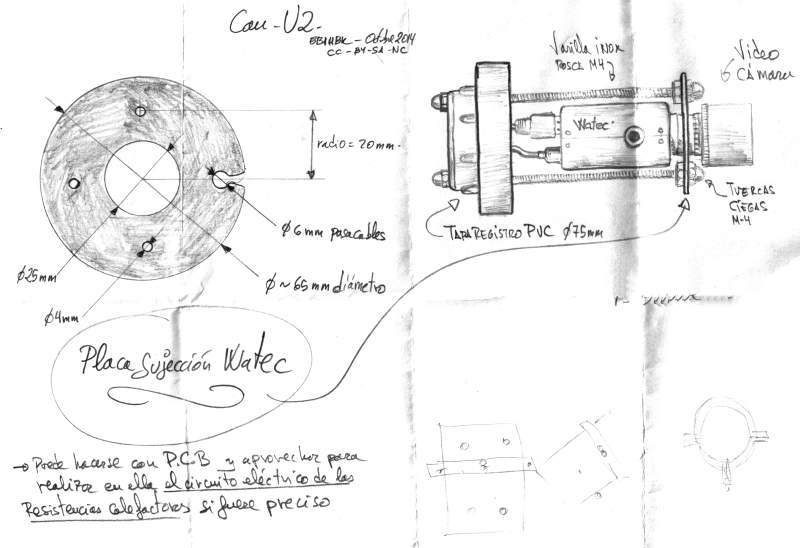 Cam-V2-
EB1HBK - Octubre 2014
CC-BY-SA-NC
radio = 20mm.
Ø6mm pasacables
Ø ~ 65mm diámetro
Ø25mm
Ø4mm
Varilla inox
ROSCA M4
Video
CÁmara
Watec
TUERCAS
CIEGAS
M-4
TAPA REGISTRO PVC Ø75mm
Placa Sujección Watec
→ Puede hacerse con P.C.B y aprovechar para
realizar en ella el circuito eléctrico de las
Resistencias calefactoras si fuese preciso